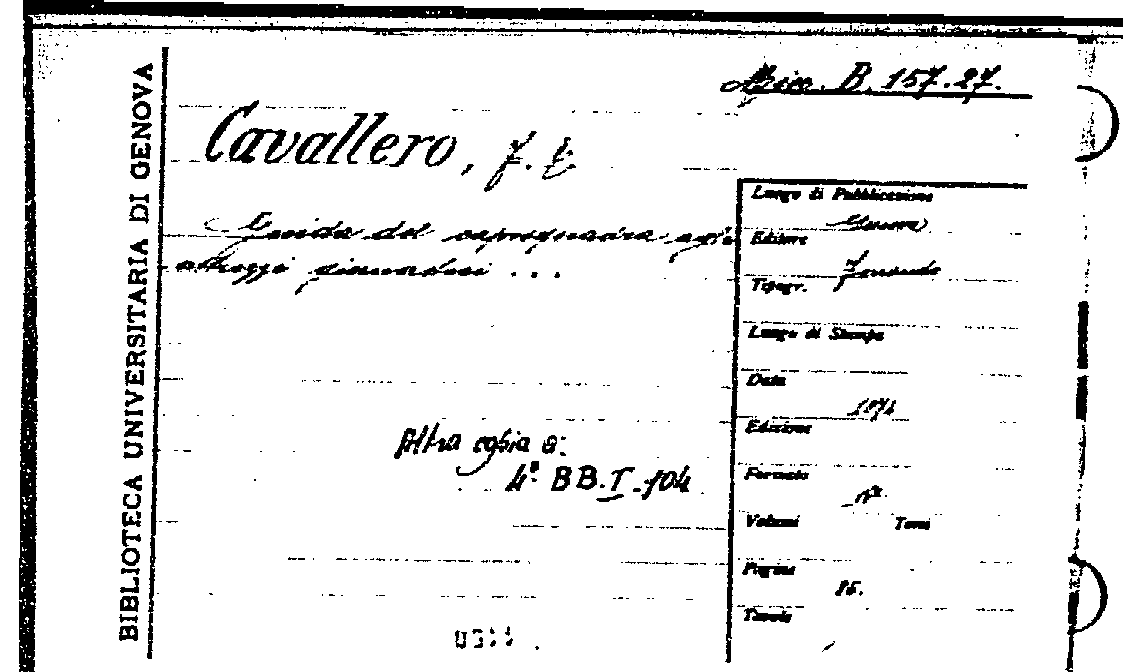 BIBLIOTECA UNIVERSITARIA DI GENOVA
Misc. B. 157.27.
Cavallero, f. t.
Guida del capoquadra agli
attrezzi ginnastici ...
Altra copia a:
4º BB.I.104
Luogo di Pubblicazione
Genova
Editore
Tipogr.
Luogo di Stampa
Data
Edizione
Formato
Volumi Tomi
Pagine
15.
Tavole